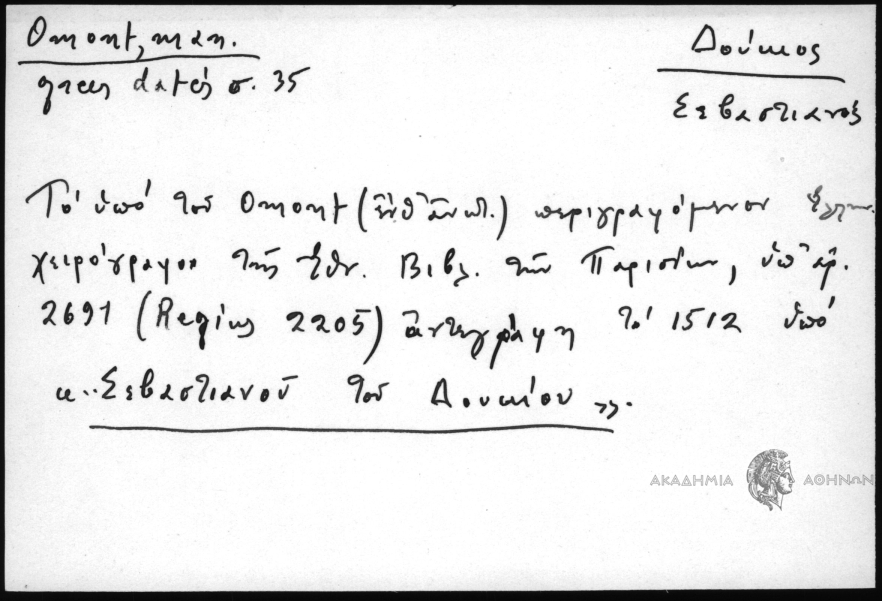 Omont, man.
grecs datés σ. 35
Δούκιος
Σεβαστιανός
Τό ὑπό τοῦ Omont (ἔνθ' ἀνωτ.) περιγραφόμενον ἑλλην.
χειρόγραφον τῆς Ἐθν. Βιβλ. τῶν Παρισίων, ὑπ' ἀρ.
2691 (Regius 2205) ἀντεγράφη τό 1512 ὑπό
«..Σεβαστιανοῦ τοῦ Δουκίου».
ΑΚΑΔΗΜΙΑ ΑΘΗΝΩΝ